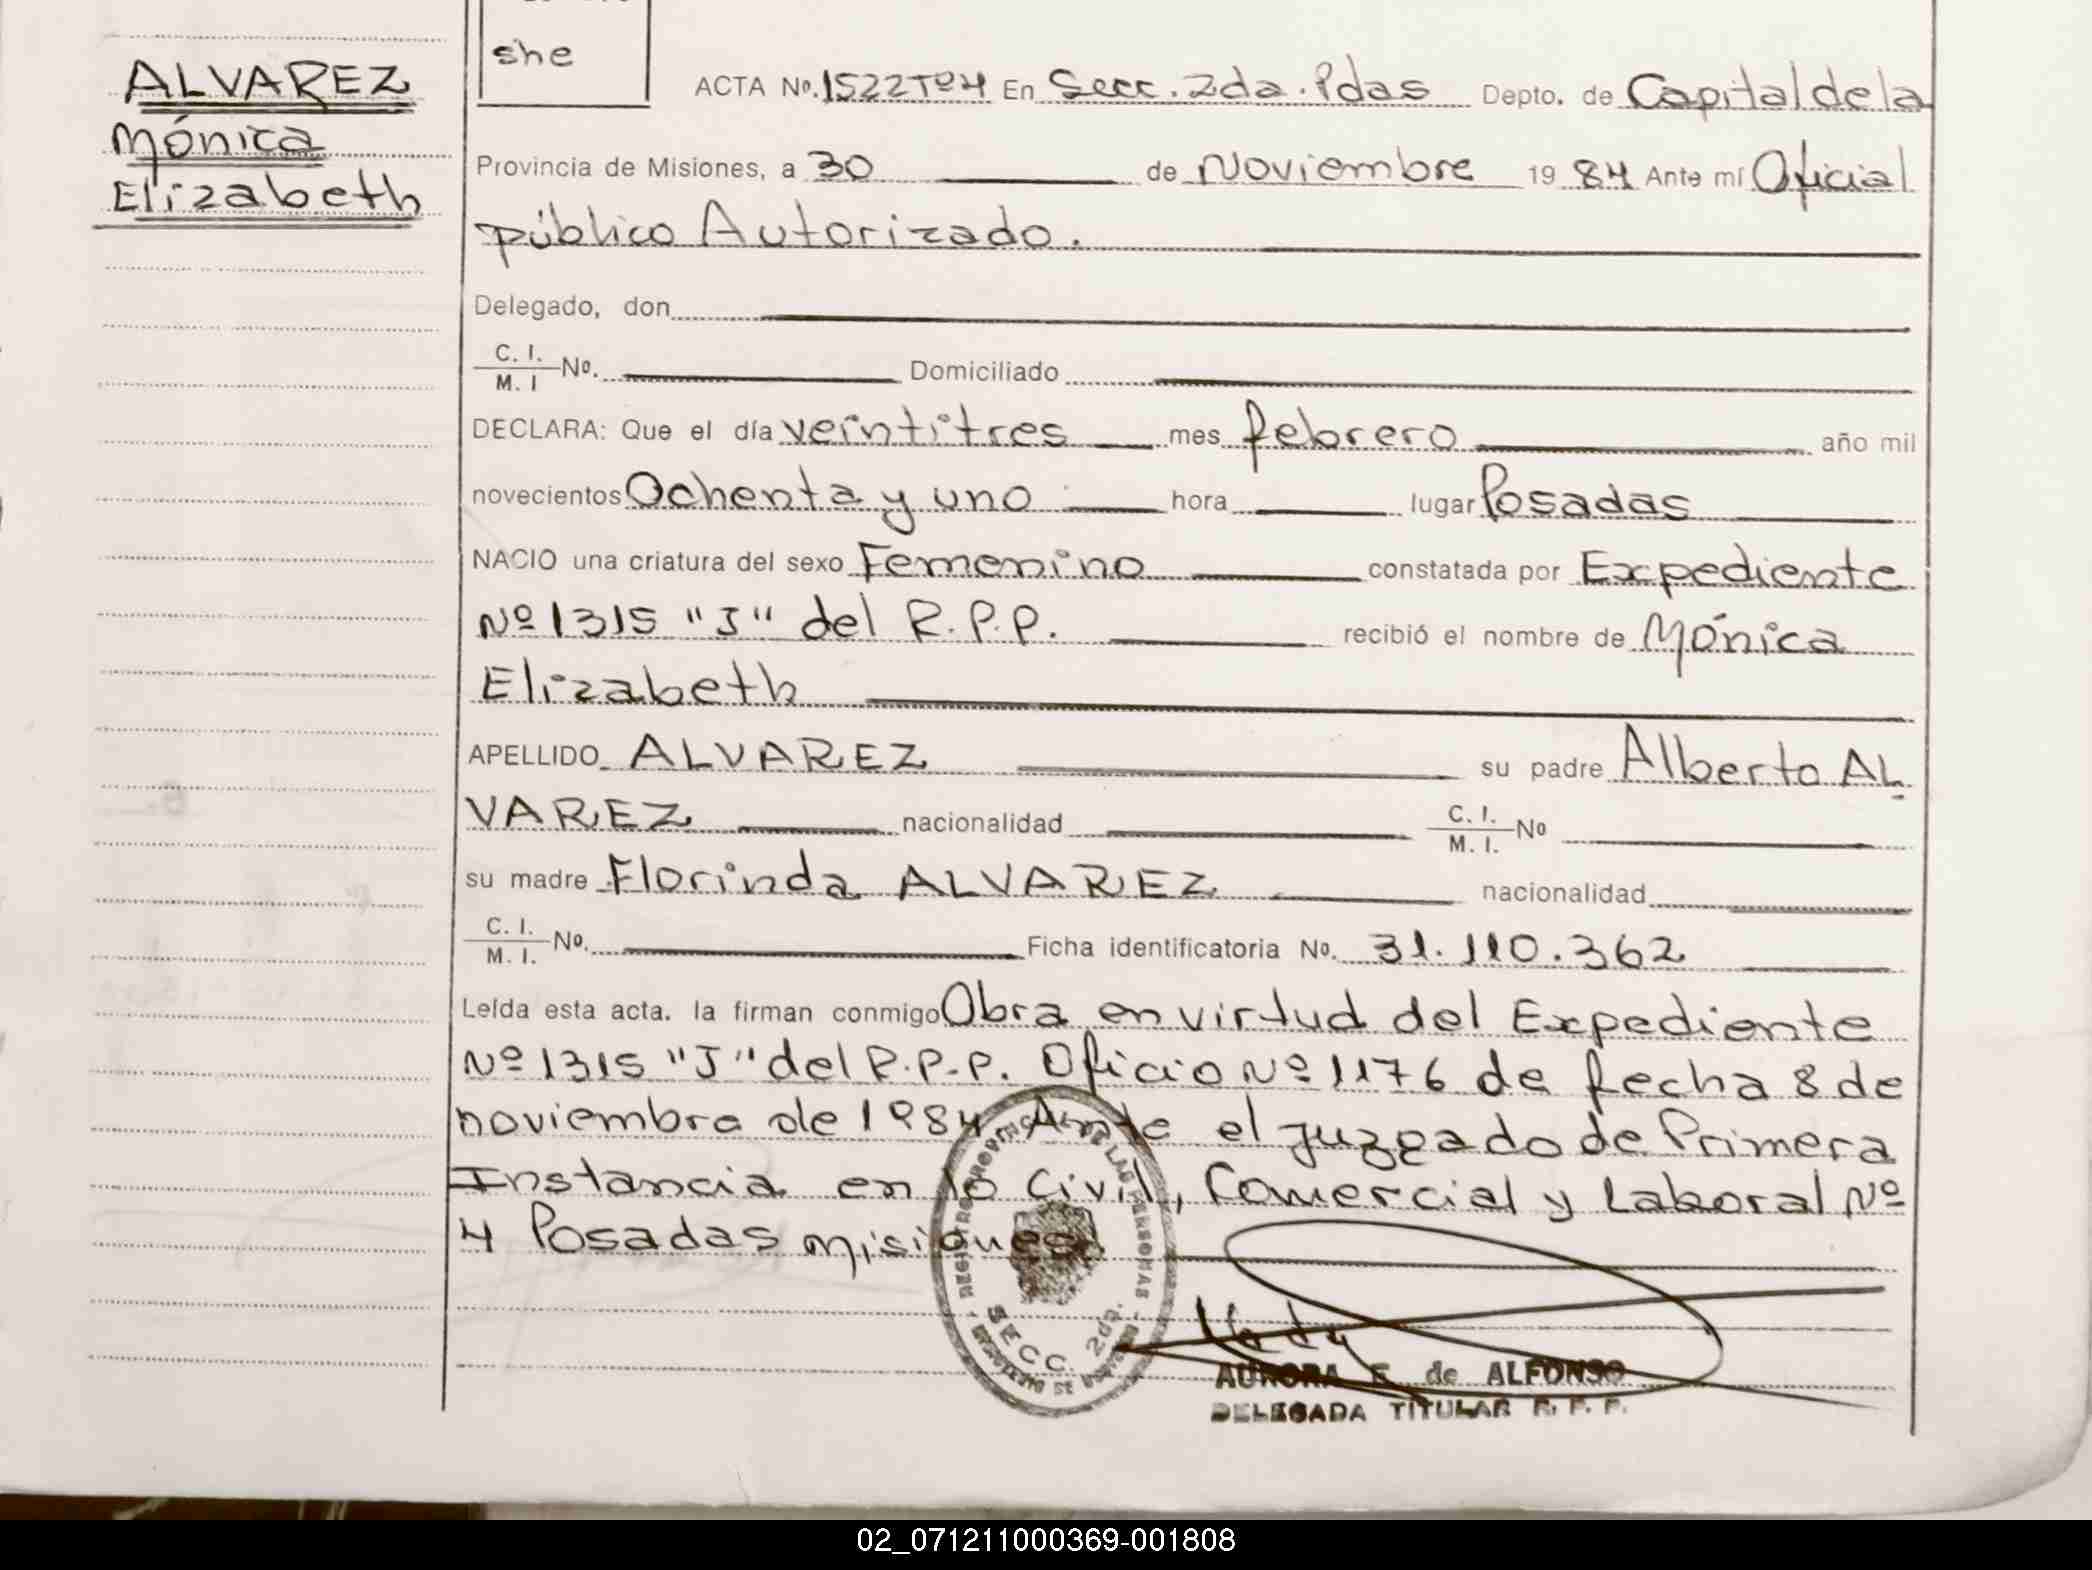 she
ALVAREZ
Mónica
Elizabeth
ACTA Nº. 1522Tº4 En Secc. 2da. Pdas Depto. de Capital de la
Provincia de Misiones, a 30 de Noviembre 1984 Ante mí Oficial
público Autorizado.
Delegado, don
C. I. / M. I Nº. Domiciliado
DECLARA: Que el día veintitres mes febrero año mil
novecientos Ochenta y uno hora lugar Posadas
NACIO una criatura del sexo Femenino constatada por Expediente
Nº 1315 "J" del R.P.P. recibió el nombre de Mónica
Elizabeth
APELLIDO ALVAREZ su padre Alberto AL
VAREZ nacionalidad C. I. / M. I. Nº
su madre Florinda ALVAREZ nacionalidad
C. I. / M. I. Nº. Ficha identificatoria Nº. 31.110.362
Leída esta acta. la firman conmigo Obra en virtud del Expediente
Nº 1315 "J" del R.P.P. Oficio Nº 1176 de fecha 8 de
noviembre de 1984 Ante el Juzgado de Primera
Instancia en lo Civil, Comercial y Laboral Nº
4 Posadas Misiones.
REGISTRO PROVINCIAL DE LAS PERSONAS
SECC. 2da.
AURORA E. de ALFONSO
DELEGADA TITULAR R. P. P.
02_071211000369-001808